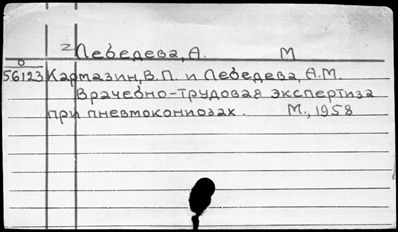 2 Лебедева, А. М
0
56123 Кармазин, В.П. и Лебедева, А.М.
Врачебно-трудовая экспертиза
при пневмокониозах. М., 1958